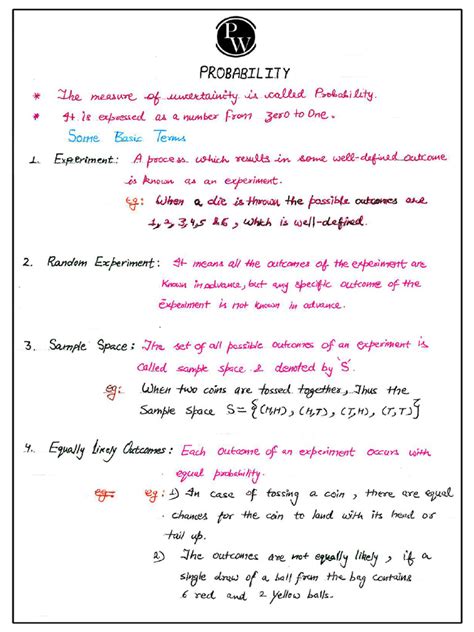 PW
PROBABILITY
* The measure of uncertainity is called Probability.
* It is expressed as a number from zero to One.
Some Basic Terms
1. Experiment: A process which results in some well-defined outcome
is known as an experiment.
eg: When a die is thrown the possible outcomes are
1, 2, 3, 4, 5 & 6, which is well-defined.
2. Random Experiment: It means all the outcomes of the experiment are
known in advance, but any specific outcome of the
experiment is not known in advance.
3. Sample Space: The set of all possible outcomes of an experiment is
called sample space & denoted by 'S'.
eg: When two coins are tossed together, Thus the
Sample space S = {(H,H), (H,T), (T,H), (T,T)}
4. Equally Likely Outcomes: Each outcome of an experiment occurs with
equal probability.
eg: eg: 1) In case of tossing a coin, there are equal
chances for the coin to land with its head or
tail up.
2) The outcomes are not equally likely, if a
single draw of a ball from the bag contains
6 red and 2 yellow balls.